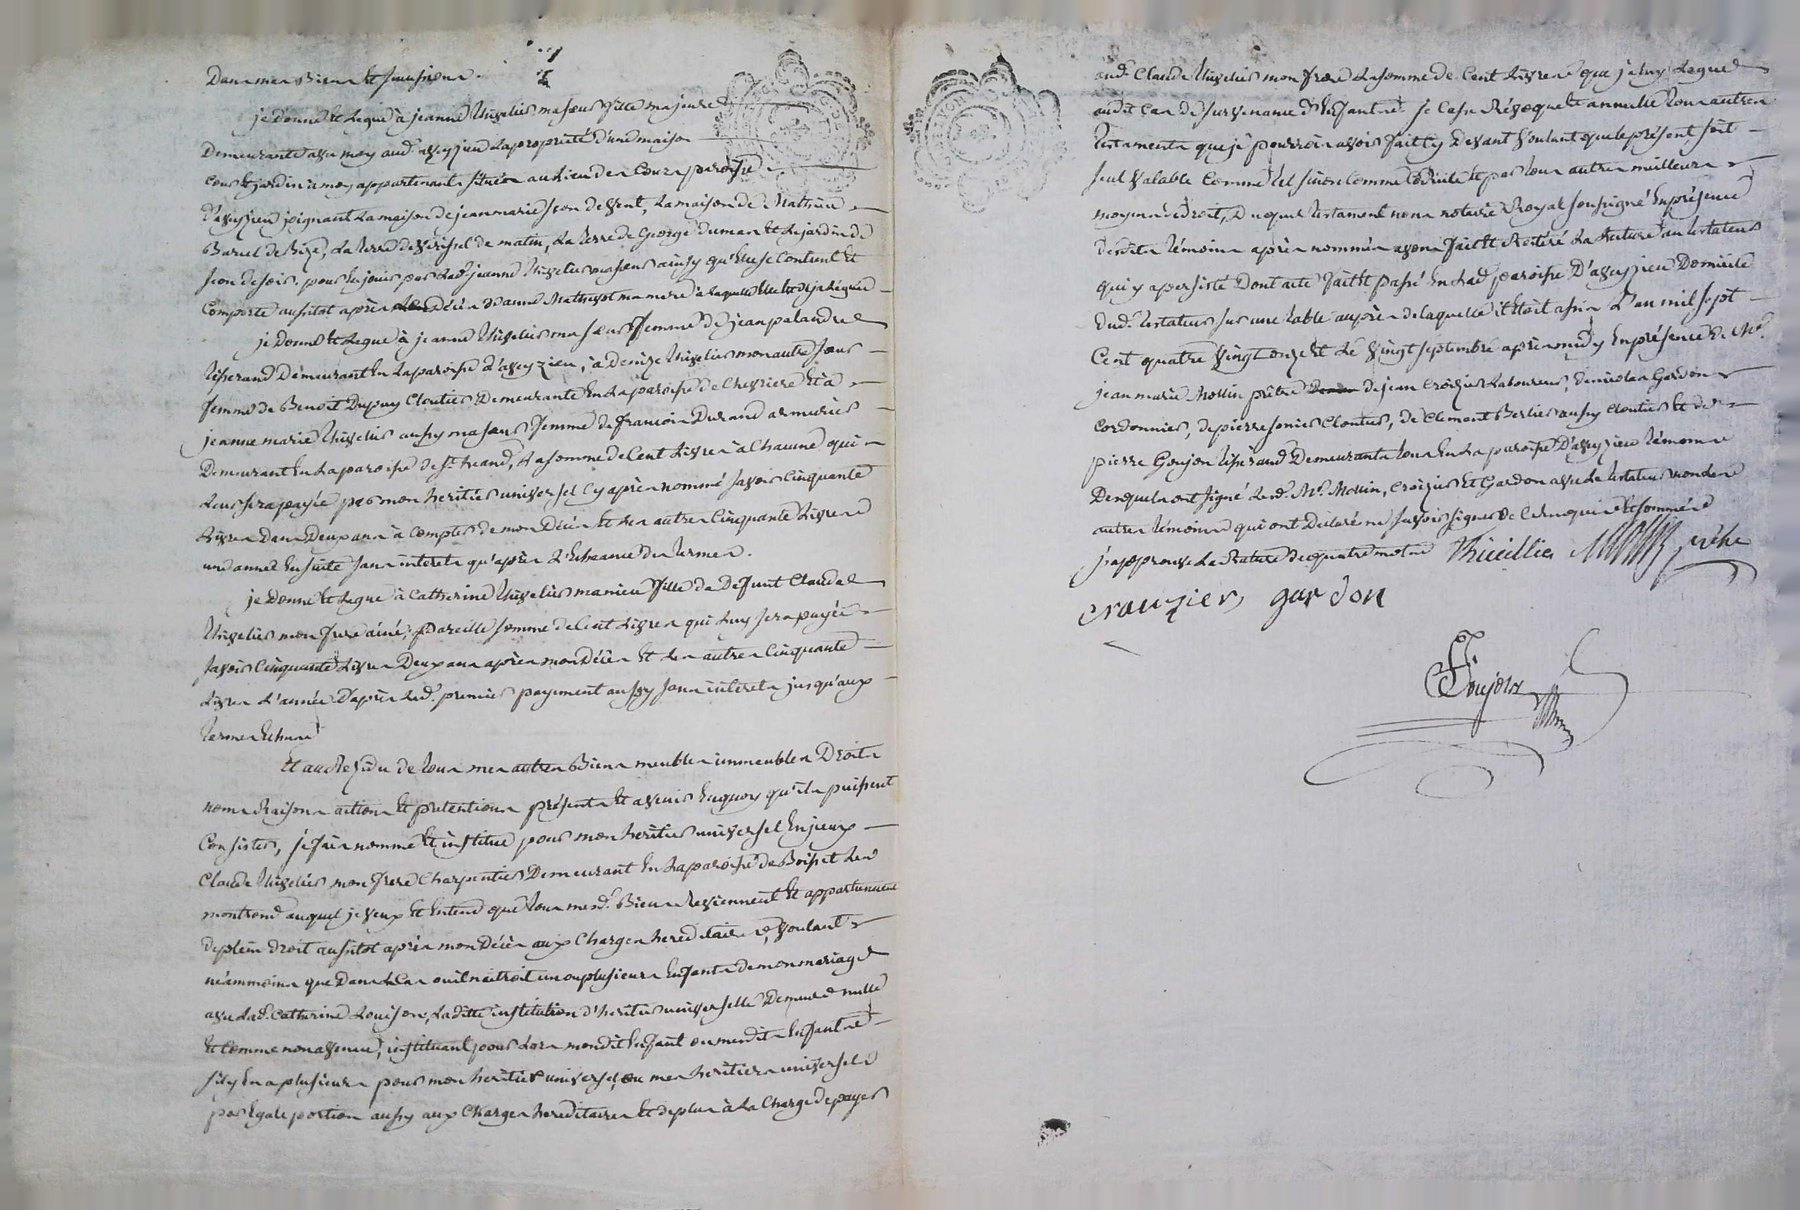 Dans mes Biens et successions.
je donne et Legue à jeanne Thivelier ma sœur fille majeure
Demeurante avec moy aud. aveyzieu La proprieté d'une maison
Cour et jardin à moy appartenants située au Lieu de la Cour paroisse
d'aveyzieu joignant La maison de jean marie de vent, La maison de Mathieu
Buruel de Bize, La terre de de matin, La terre de George Dumas et Le jardin de
de soir. pour En jouir par Lad. jeanne Thivelier ma sœur ainsy qu'Elle se Contient et
Comporte aussitot après Le Décès d'anne ma mere à laquelle Elle
je donne et Legue à jeanne Thivelier ma sœur femme de jean palandre
tisserand Demeurant En La paroisse d'aveyzieu, à Denize Thivelier mon autre sœur
femme de Benoit Dupuy Cloutier Demeurante En La paroisse de Chevriere et à
jeanne marie Thivelier aussy ma sœur femme de francois Durand armurier
Demeurant En La paroisse de St heand, La somme de Cent Livres à Chacune qui
Leur sera payée par mon heritier universel Cy après nommé savoir Cinquante
Livres Dans Deux ans à Compter de mon Décès et Les autres Cinquante Livres
une année Ensuite sans interets qu'après L'Echeance des termes.
je Donne et Legue à Catherine Thivelier ma niece fille de Defunt Claude
Thivelier mon frere ainé, pareille somme de Cent Livres qui Luy sera payée
savoir Cinquante Livres Deux ans après mon Décès Et Les autres Cinquante
Livres L'année D'après Led. premier payement aussy sans interets jusqu'aux
termes Echus
Et au Residu de tous mes autres Biens meubles immeubles Droits
noms Raisons actions et pretentions présents et avenir En quoy qu'ils puissent
Consister, j'ay fais nommé et institue pour mon heritier universel En jceux
Claude Thivelier mon frere Charpentier Demeurant En La paroisse de Boisset Les
montrond auquel je veux Et Entend que tous mesd. Biens Reviennent Et appartiennent
de plein Droit aussitot après mon Décès aux Charges hereditaires, voulant
néanmoins que Dans Le Cas ou il naitroit un ou plusieurs Enfants de mon mariage
avec Lad. Catherine Louison, Laditte institution d'heritier universelle Demeure nulle
Et Comme non avenue, instituant pour Lors mondit Enfant ou mesdits Enfants
s'il y En a plusieurs pour mon heritier universel, ou mes heritiers universels
par Egale portion aussy aux Charges hereditaires Et de plus à La Charge de payer
aud. Claude Thivelier mon frere La somme de Cent Livres que je luy Legue
audit Cas de survenance d'Enfants. Je Casse Révoque et annulle tous autres
testaments que je pourrois avoir fait Cy Devant voulant que Le présent soit
seul valable Comme tel sinon Comme Codicile et par tous autres meilleurs
moyens de Droit, Duquel testament nous notaire Royal soussigné En présence
desdits témoins après nommés avons fait Et Réitéré La Lecture au testateur
qui y a persisté Dont acte fait Et passé En Lad. paroisse D'aveyzieu Domicile
Dud. testateur sur une table auprès de laquelle il Etoit assis L'an mil sept
Cent quatre vingt onze Et Le vingt septembre après midy En présence de Mre
jean marie Mollin prêtre de jean Croizier Laboureur, de nicolas Gardon
Cordonnier, de pierre Cloutier, de Clement Berlier aussy Cloutier Et de
pierre Goujon tisserand Demeurants tous En La paroisse D'aveyzieu témoins
Desquels ont signé Lesd. Mre Mollin, Croizier Et Gardon avec Le testateur non les
autres témoins qui ont Déclaré ne savoir signer de Ce Enquis et sommés
j'approuve La Rature de quatre mots Thivillier Mollin prêtre
crouzier, gardon
Goujon